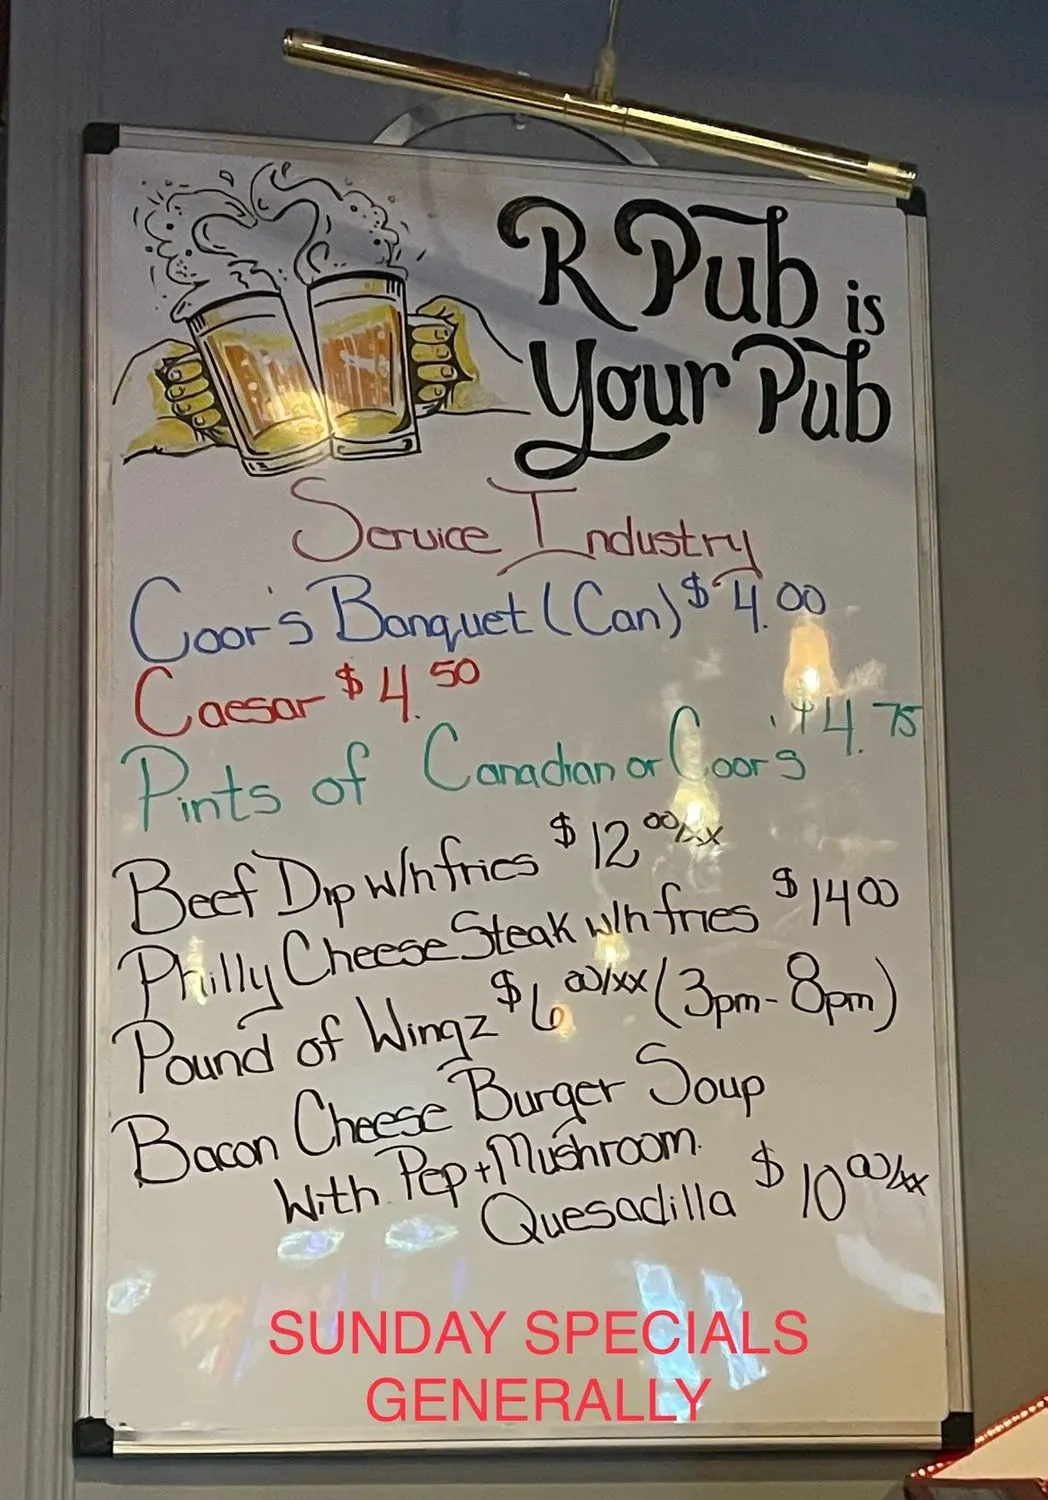 R Pub is
Your Pub
Service Industry
Coor's Banquet (Can) $4.00
Caesar $4.50
Pints of Canadian or Coor's $4.75
Beef Dip w/h fries $12 00/xx
Philly Cheese Steak w/h fries $14 00
Pound of Wingz $6 00/xx (3pm-8pm)
Bacon Cheese Burger Soup
With Pep + Mushroom
Quesadilla $10 00/xx
SUNDAY SPECIALS
GENERALLY